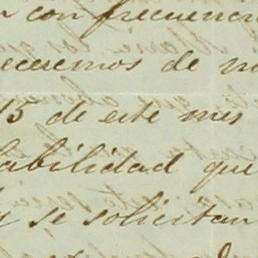 con frecuenci
eceremos de n
15 de este mes
abilidad que
y se solicitan